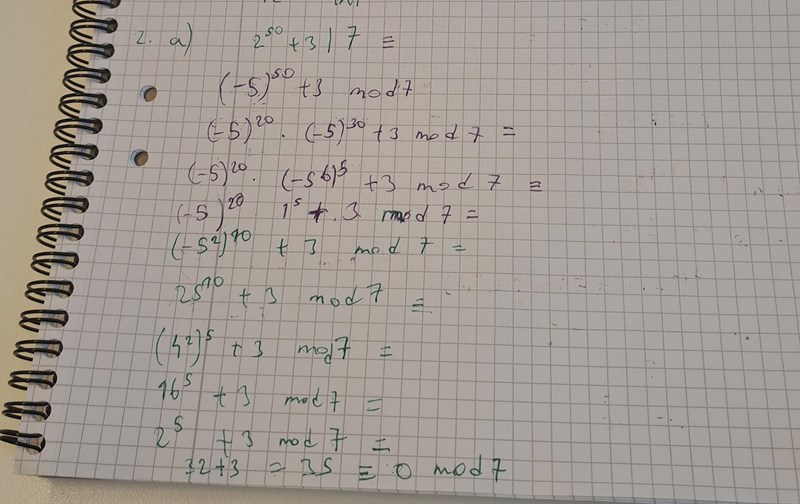 2. a) 2^50 + 3 | 7 ≡
(-5)^50 + 3 mod 7
(-5)^20 · (-5)^30 + 3 mod 7 =
(-5)^20 · (-5^6)^5 + 3 mod 7 ≡
(-5)^20 1^5 + 3 mod 7 =
(-5^2)^10 + 3 mod 7 =
25^10 + 3 mod 7 ≡
(4^2)^5 + 3 mod 7 =
16^5 + 3 mod 7 =
2^5 + 3 mod 7 =
32+3 = 35 ≡ 0 mod 7